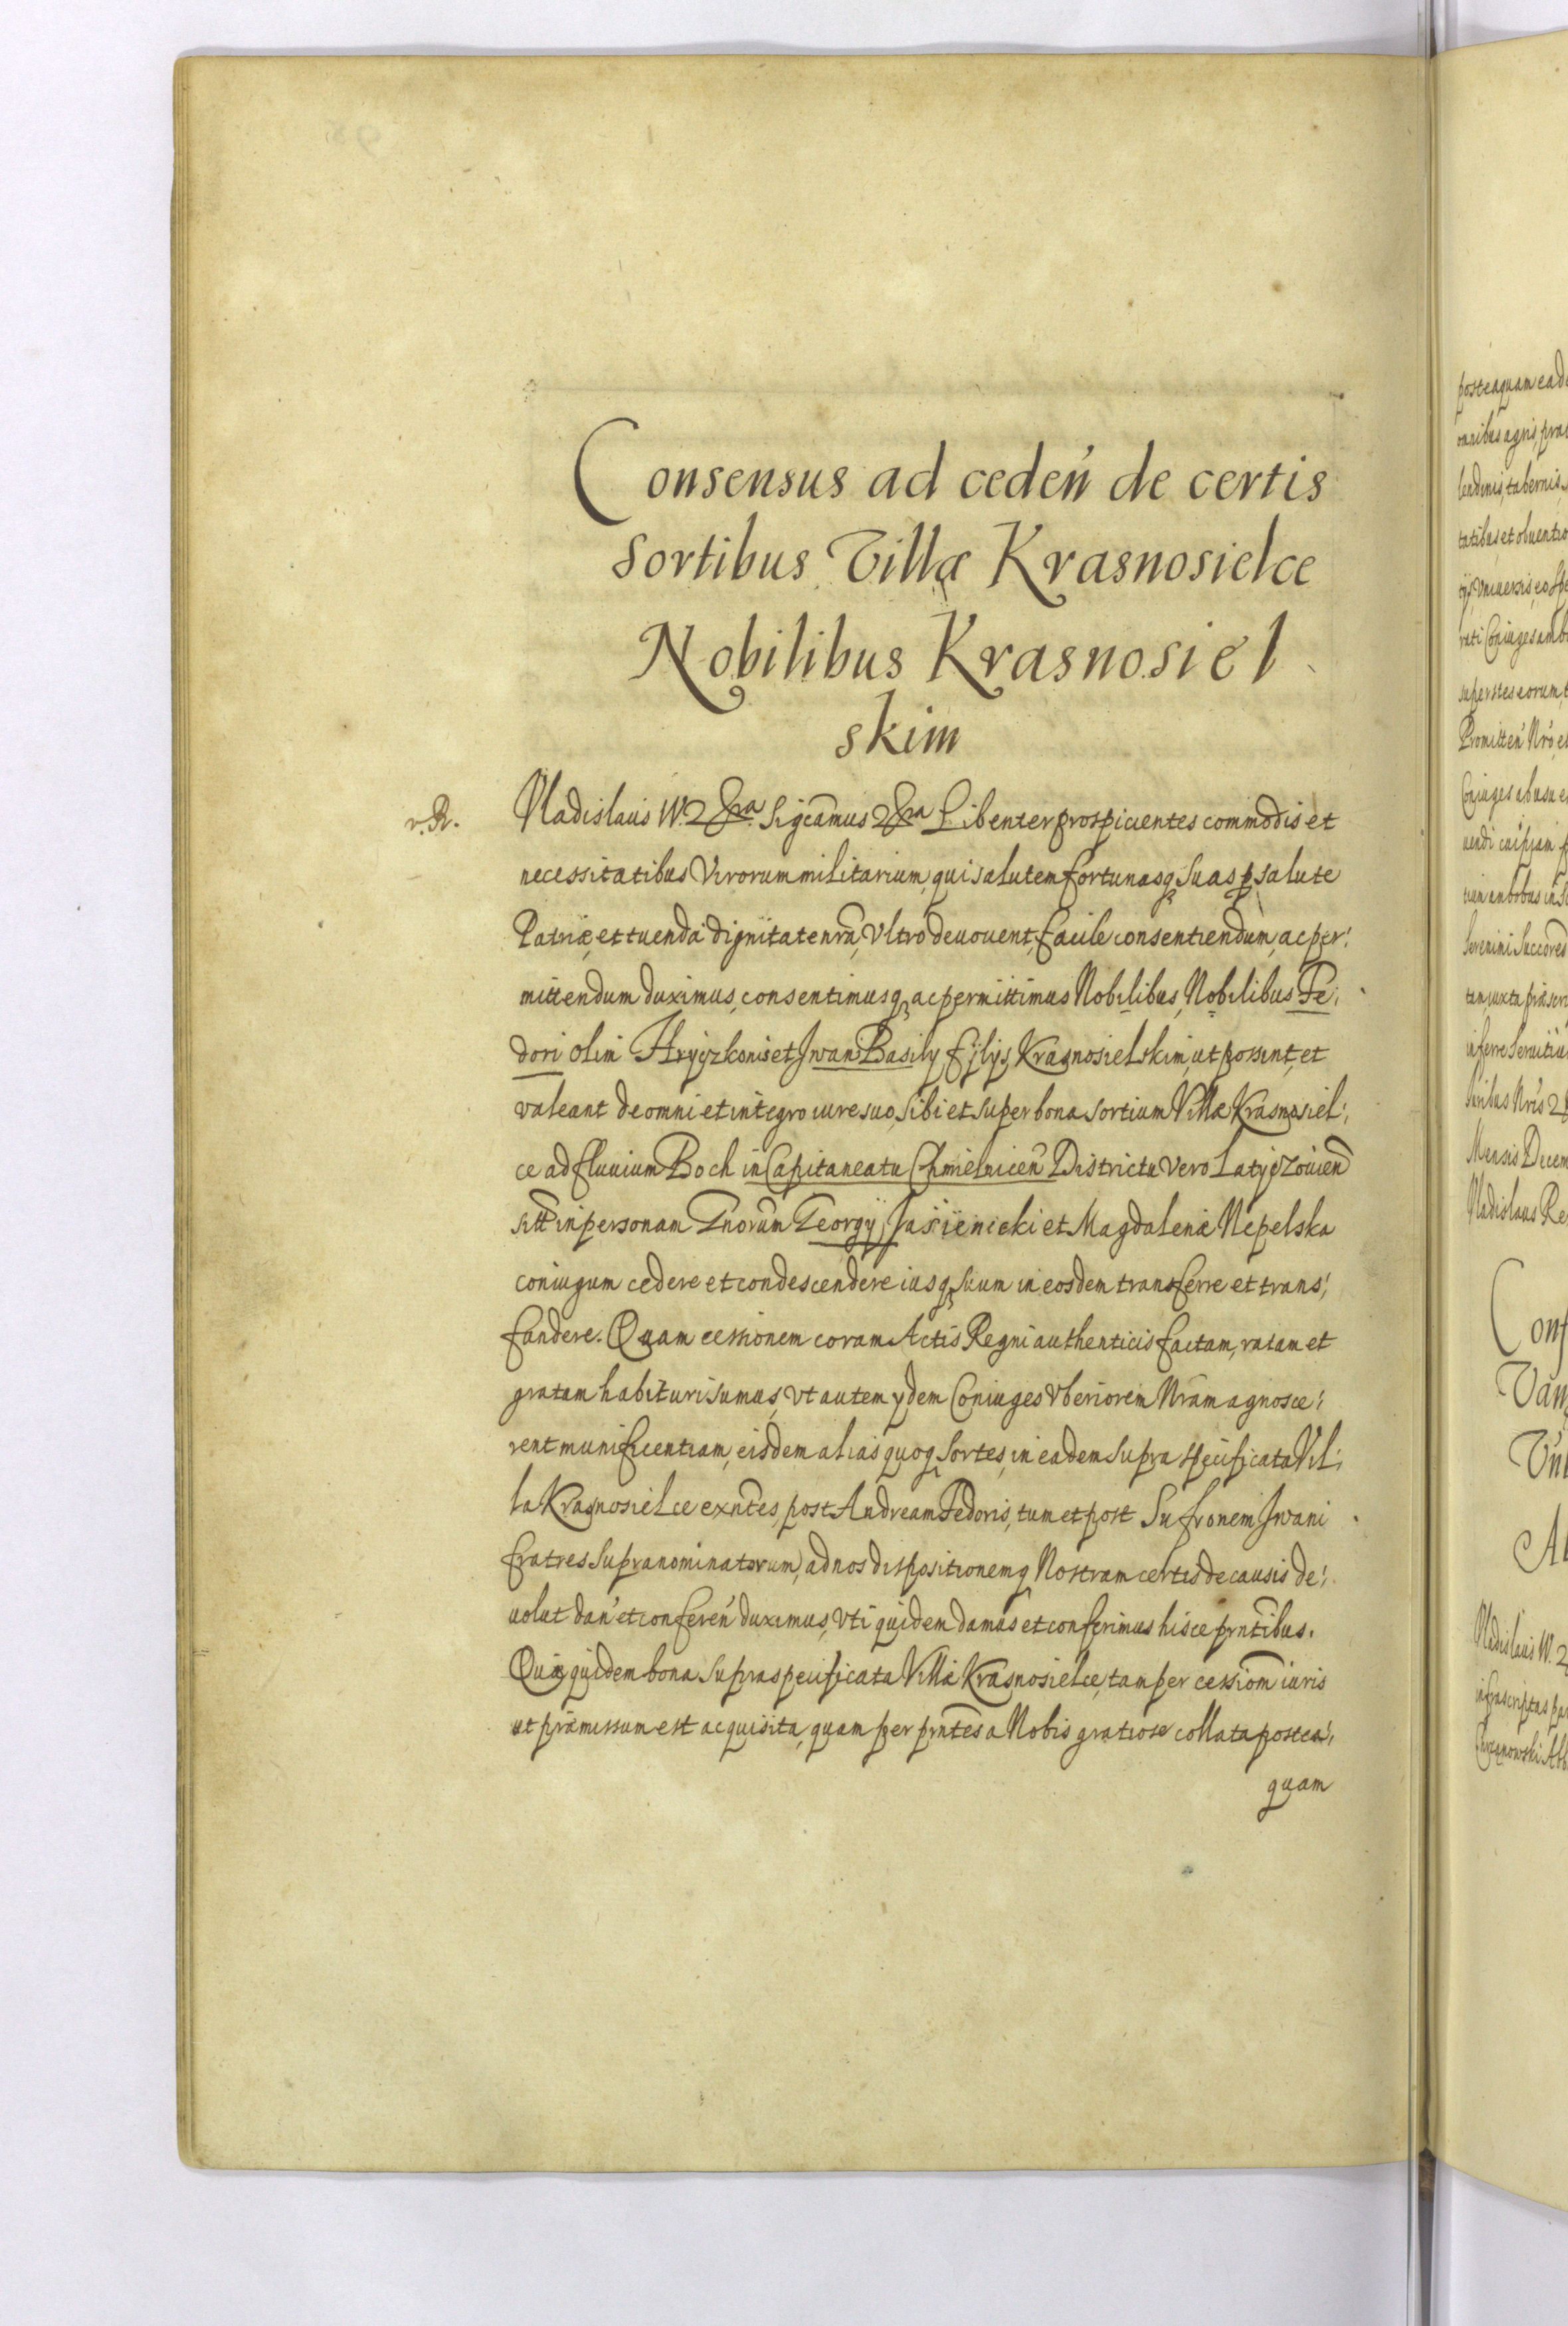 Consensus ad ceden̄ de certis
Sortibus Villæ Krasnosielce
Nobilibus Krasnosiel
skim
v. R.
Vladislaus W. 2 &ra. Sigcamus 2 &ra Libenter prospicientes commodis et
necessitatibus Virorum militarium, qui salutem fortunasq suas p salute
Patriæ, et tuenda dignitate nrã, Vltro deuouent, facile consentiendum, ac per:
mittendum duximus, consentimusq ac permittimus Nobilibus, Nobilibus Fe:
dori olim Hryczkonis et Jwan Basily fijlijs Krasnosielskim, ut possint, et
valeant de omni et integro iure suo, sibi et super bona sortium Villæ Krasnosiel:
ce ad fluuium Boch in Capitaneatu Chmielnicen̄ Districtu vero Latyczouien̄
sitt̃ in personam Gnorũm Georgij Jasienicki et Magdalenæ Nepelska
coniugum cedere et condescendere iusq suum in eosdem transferre et trans:
fundere. Quam cessionem coram Actis Regni authenticis factam, ratam et
gratam habituri sumus, Vt autem ydem Coniuges Vberiorem Nrãm agnosce:
rent munificentiam, eisdem alias quoq sortes, in eadem supra specificata Vil:
la Krasnosielce exñtes, post Andream Fedoris, tum et post Sufronem Jwani
fratres supranominatorum, ad nos dispositionemq Nostram certis de causis de:
uolut dan̄ et conferen̄ duximus, Vti quidem damus et conferimus hisce prñtibus.
Quæ quidem bona supraspecificata Villæ Krasnosielce, tam per cessiom̃ iuris
ut præmissum est acquisita, quam per prñtes a Nobis gratiose collata postea:
quam
posteaquam ead
leadinis, tabernis,
tatibus et obuentio
superstes eorum, t
Promitten̄ Nrõ, et
Coniuges ab usu e
Mensis Decem
Vladislaus Re
Conf
Vladislaus W. 2
infrascriptas pa